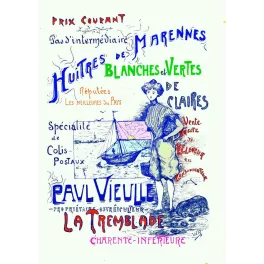 PRIX COURANT
Pas d'intermédiaire
HUÎTRES DE MARENNES
BLANCHES ET VERTES
Réputées
LES MEILLEURES DU PAYS
DE
CLAIRES
Spécialité
de
Colis
Postaux
Vente
PAUL VIEULLE
PROPRIÉTAIRE
LA TREMBLADE
CHARENTE-INFÉRIEURE